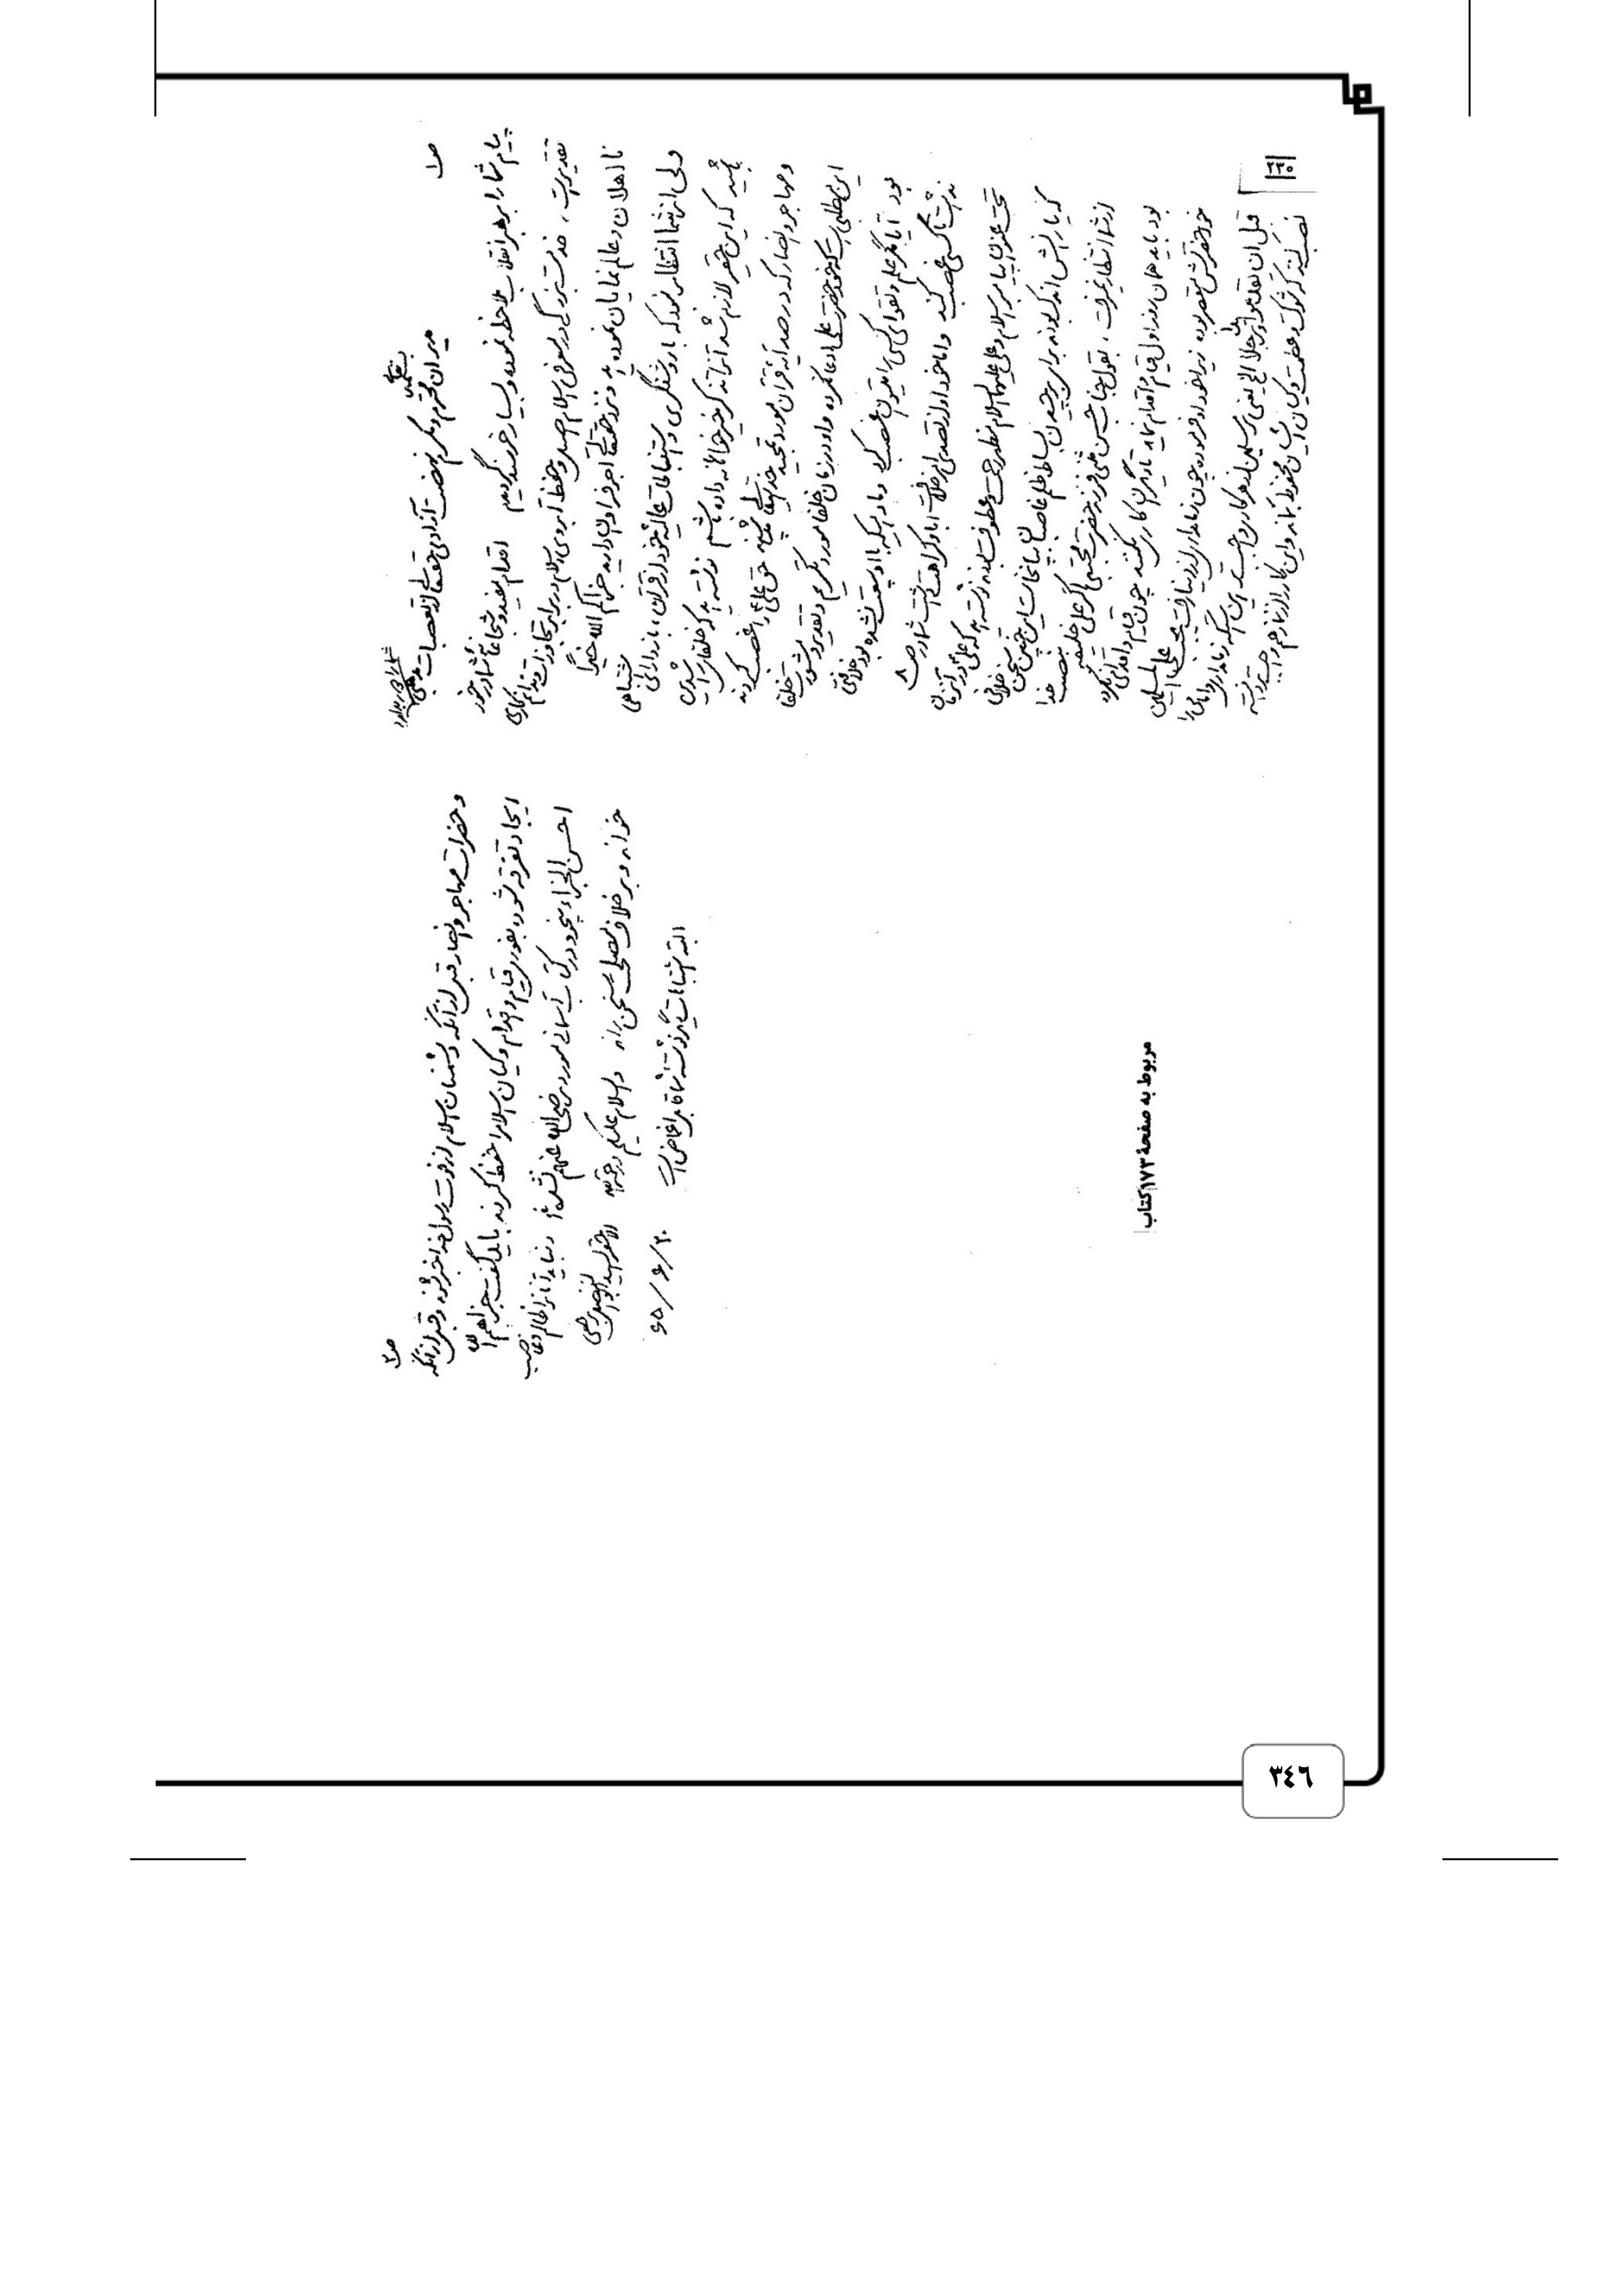 ص ۱
بسمه تعالی
میران محترم و مکرم نهضت آزادی حفظهم الله تعالی از تعصبات مذهبی
پیام شما را برهبر انقلاب ملاحظه نموده و بسیار خرسند گردیدم اقدام مفید و شجاعانهٔ شما درخور
تقدیر است، خدمت بزرگی در معرفی اسلام اصیل و حفظ آبروی اسلام در برابر تجاوزات و ندانم کاری
نااهلان و عالم نمایان نموده اید و نزد حقتعالی اجر فراوان دارید جزاکم الله خیراً
ولی از شما انتظار نبود که با روشنگری و استنباطات عالیهٔ خود از قرآن، باز دارای اشتباهی
باشید که این حقیر لازم شد آنرا تذکر خیرخواهانه داده باشم نوشته اید که خلفای راشدین
و مهاجر و انصار که در صد آیه قرآن مورد تمجید خداست حق علی ع را غصب کردند
این مطلبی است که خود حضرت علی ادعا نکرده و او در زمان خلفا مورد تکریم و تقدیر و مشورت خلفا
بود آیا مگر علم و تقوای کسی را میتوان غصب کرد و مادامیکه با او بیعت نشده بود خلافتی
نداشت تا کسی غصب کند و اما خود او از تصدی خلافت اباء و کراهت داشت شما در ص ۸
تحت عنوان پیامبر اسلام و علی علیهما السلام مظهر رحمت و عطوفت بودند نوشته اید که علی در آنزمان
که یارانش اندک بودند برای برچیدن بساط ظلم غاصبان یا نجات این چنین سخن خلافی
از شما انتظار نمیرفت، بقول جناب حسن مثنی فرزند حضرت مجتبی اگر علی خلیفه بنصب خدا
بود باید همان روز اول قیام و اقدام نماید تا دیگران کار نکنند چون قیام و اقدامی نکرد
خود حضرتش مقصر بوده زیرا خود او فرموده چون زمامدار از دنیا رفت یجب علی المسلمین
قبل ان یقدموا یداً او رجلا الخ یعنی مسلمین از هر کاری واجبتر این است که زمامداری دانا را
نصب کنند که شوکت و عظمت و کیان ایشان محفوظ بماند و این کار را از نماز هم واجب تر دانسته
ص ۲
و حضرات مهاجر و انصار قبل از آنکه دشمنان اسلام از فوت رسول خدا خبر شوند و قبل از آنکه
ایجاد تفرقه شود، بفوری قیام و اقدام و کیان اسلام را حفظ کردند باید گفت جزاهم الله
احسن الجزاء و بیخود در کتاب آسمانی مورد رضی الله عنهم نشده اند و نباید آنانرا ظالم و غاصب
خواند و برخلاف مصلحت سخن راند والسلام علیکم و رحمة الله الاحقر سید ابوالفضل برقعی
البته اشتباهات دیگر نوشته شما قابل اغماض است ۶۵/۶/۳۰
مربوط به صفحهٔ ۱۷۳ کتاب
٣٤٦